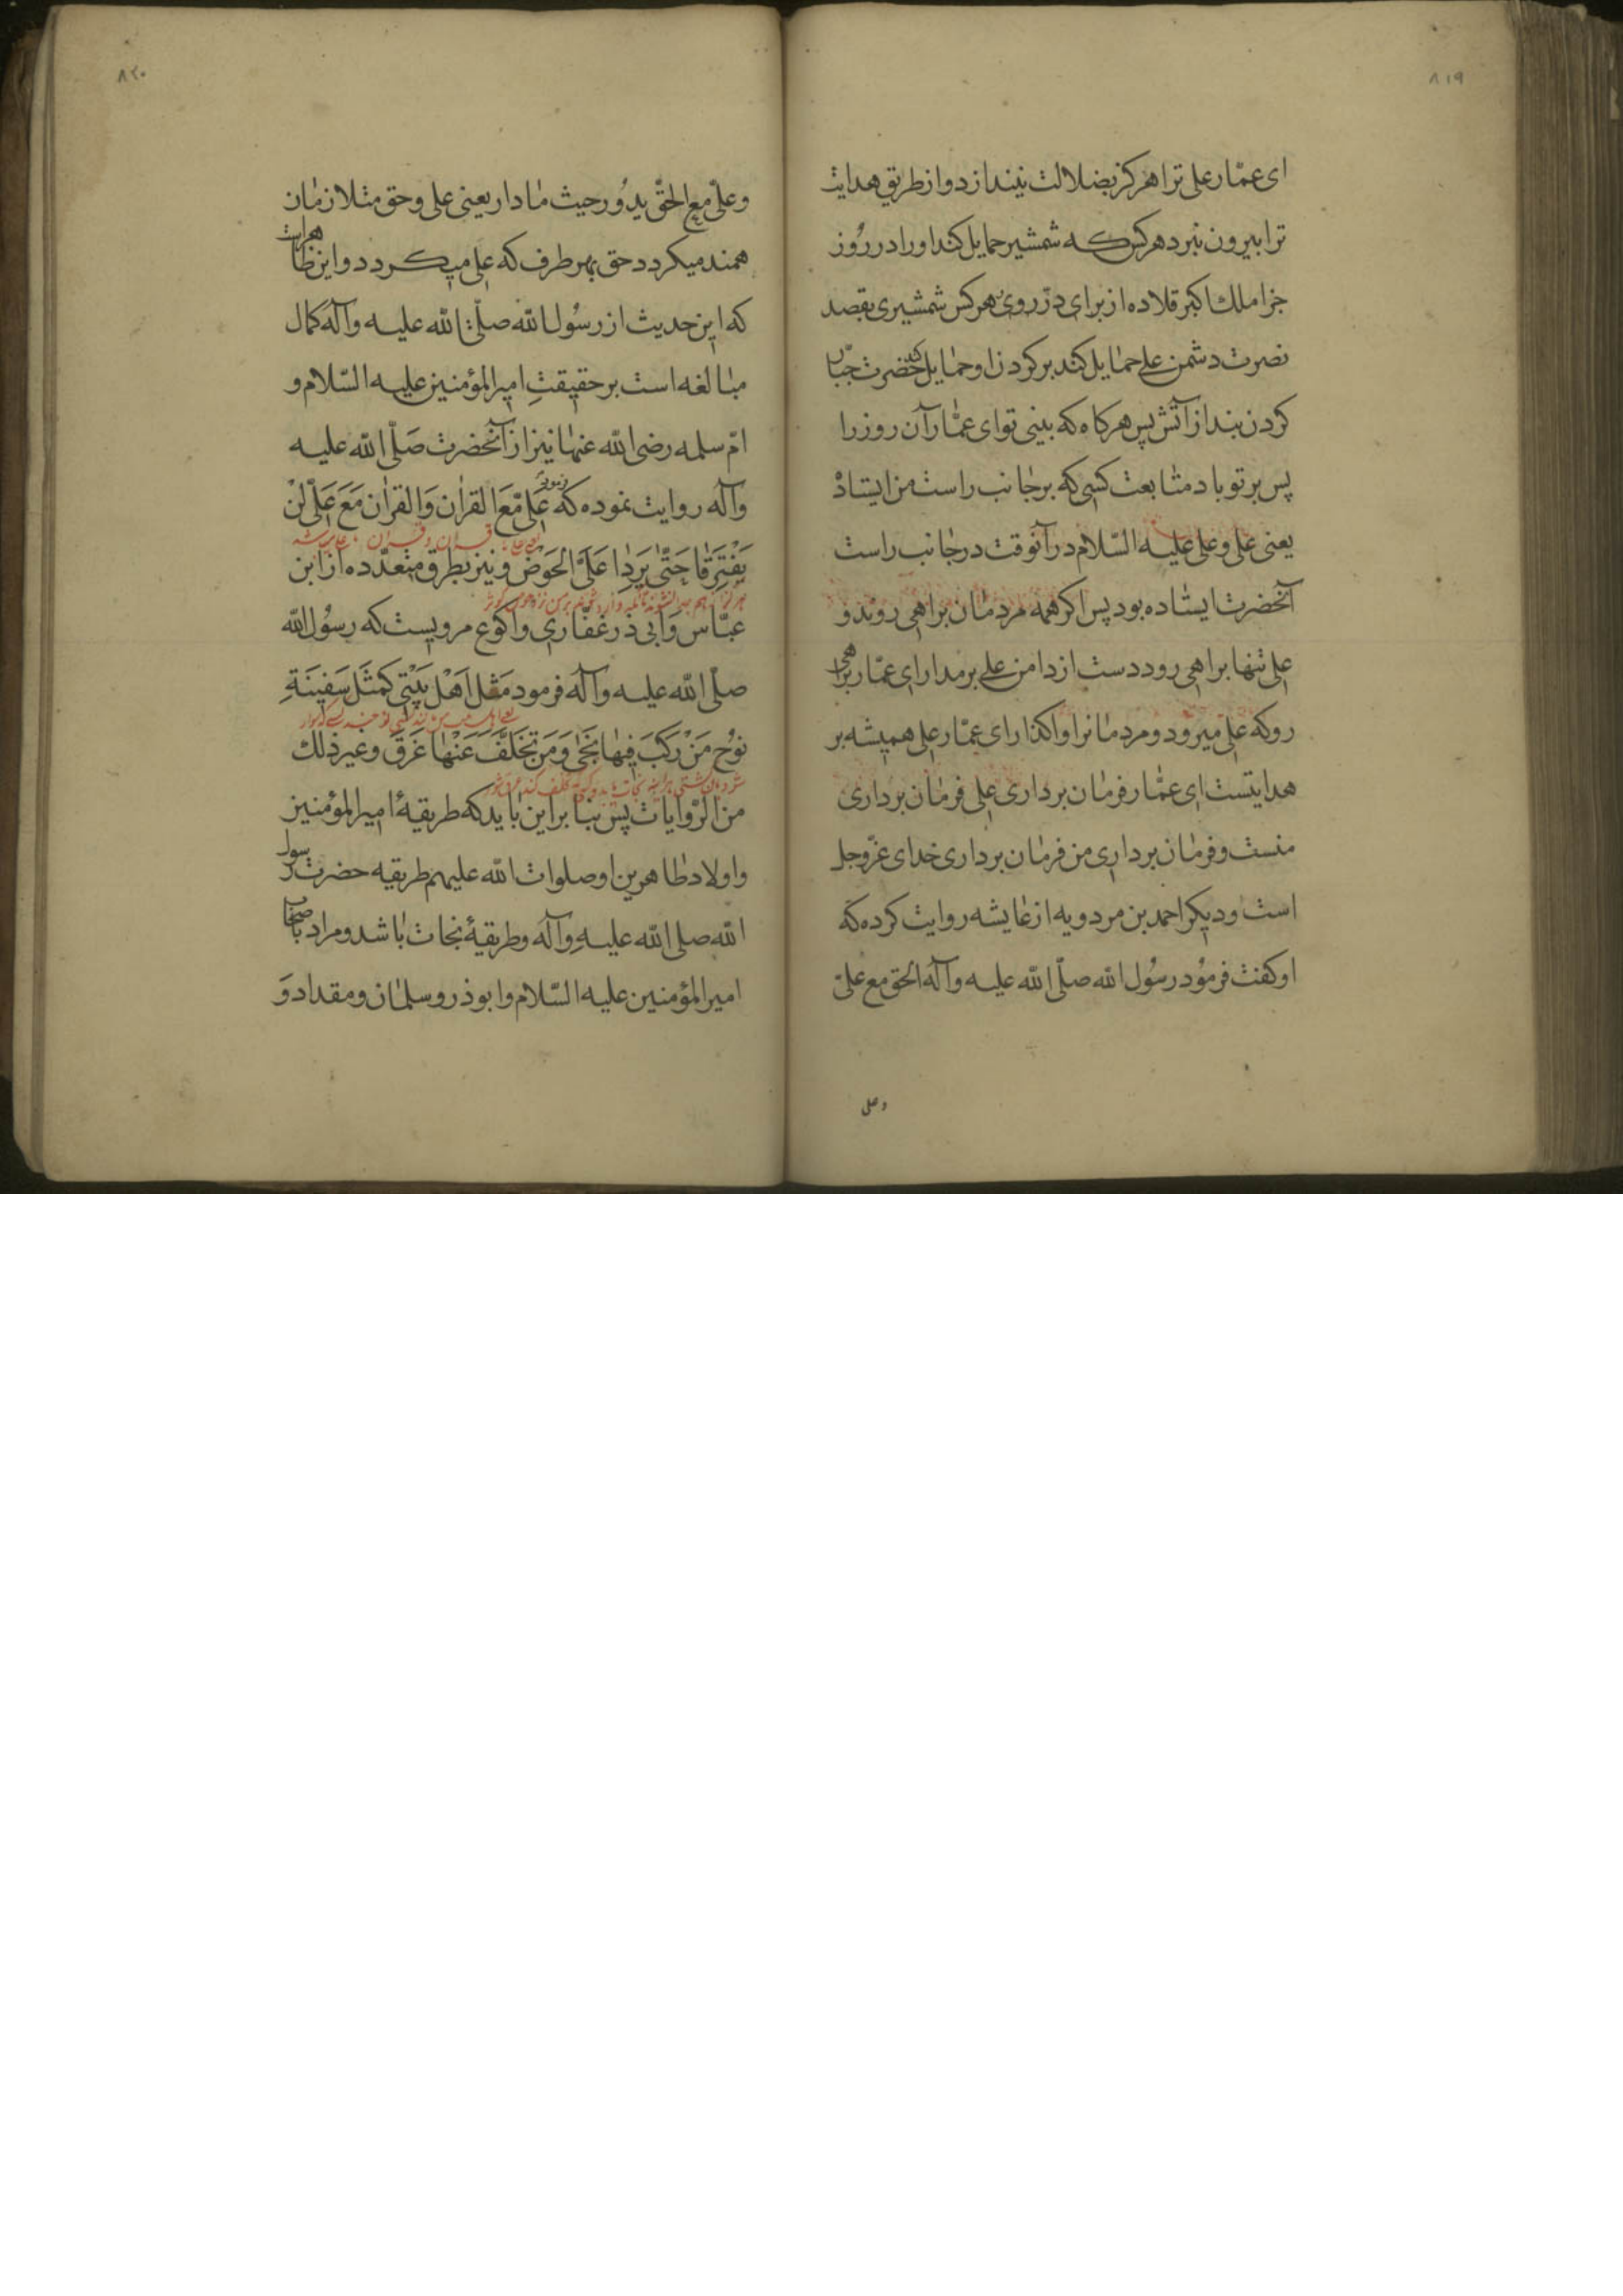 ۸۱۹
ای عمّار علی ترا هرکز بضلالت نیندازد و از طریق هدایت
ترا بیرون نبرد هرکس که شمشیر حمایل کند او را در روز
جزا ملك اکبر قلاده از برای در روی هرکس شمشیری بقصد
نصرت دشمن علی حمایل کند بر کردن او حمایل کند حضرت جبّار
کردن بند از آتش پس هرکاه که بینی تو ای عمّار آن روز را
پس بر تو باد متابعت کسی که بر جانب راست من ایستاد
یعنی علی و علی علیه السّلام در آنوقت در جانب راست
آنحضرت ایستاده بود پس اکر همه مردمان براهی روند و
علی تنها براهی رود دست از دامن علی برمدار ای عمّار براهی
رو که علی میرود و مردمانرا واکذار ای عمّار علی همیشه بر
هدایتست ای عمّار فرمان برداری علی فرمان برداری
منست و فرمان برداری من فرمان برداری خدای عزّوجل
است و دیکر احمد بن مردویه از عایشه روایت کرده که
او کفت فرمود رسُول الله صلّی الله علیه وآله الحق مع علیّ
وعلی
۸۲۰
وعلیّ مع الحقّ یدُور حیث ما دار یعنی علی و حق متلازمان
همند میکردد حق بهر طرف که علی میکردد و این ظاهر است
که این حدیث از رسُول الله صلّی الله علیه وآله کمال
مبالغه است بر حقیقتِ امیرالمؤمنین علیه السّلام و
امّ سلمه رضی الله عنها نیز از آنحضرت صَلّی الله علیه
وآله روایت نموده که فرمود عَلیّ مَّعَ القرٰان وَالقرٰان مَعَ عَلیّ لَنْ
یعنی علی با قرآن و قرآن با علی باشد
یَفْتَرِقَا حَتّٰی یَرِدٰا عَلَیَّ الحَوْضَ و نیز بطرق متعدّده از ابن
هرکز از هم جدا نشوند تا آنکه وارد شوند بر من نزد حوض کوثر
عبّاس وَابی ذر غفاری واکوع مرویست که رسُول الله
صلّی الله علیه وآله فرمود مَثَل اَهْل بَیْتی کَمَثَل سَفِینَةِ
نوُح مَنْ رَکَبَ فِیهٰا نَجٰی وَمَن تَخَلَّفَ عَنْهٰا غَرَقَ وغیر ذلك
من الرّوایات پس بنا بر این باید که طریقهٔ امیرالمؤمنین
و اولاد طاهرین او صلوات الله علیهم طریقه حضرت رسول
الله صلی الله علیهِ وآله وطریقهٔ نجات باشد و مراد باصحاب
امیرالمؤمنین علیه السّلام و ابوذر و سلمان و مقداد وَ